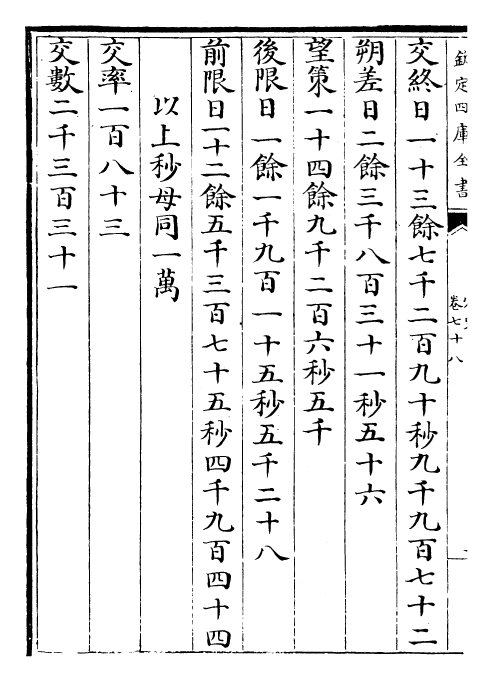 欽定四庫全書
卷七十八
交終日一十三餘七千二百九十秒九千九百七十二
朔差日二餘三千八百三十一秒五十六
望策一十四餘九千二百六秒五千
後限日一餘一千九百一十五秒五千二十八
前限日一十二餘五千三百七十五秒四千九百四十四
以上秒母同一萬
交率一百八十三
交數二千三百三十一